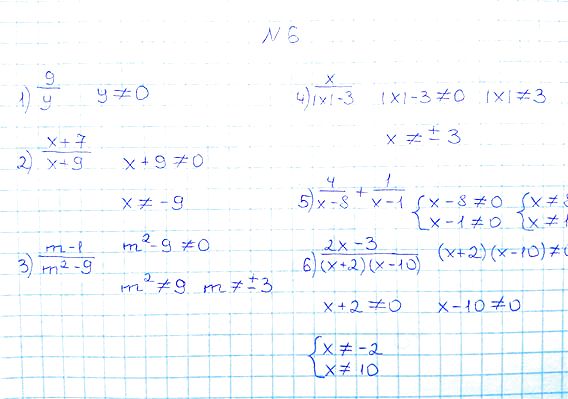 N 6
1) 9/y y ≠ 0
2) x+7/x+9 x+9 ≠ 0
x ≠ -9
3) m-1/m²-9 m²-9 ≠ 0
m² ≠ 9 m ≠ ±3
4) x/|x|-3 |x|-3 ≠ 0 |x| ≠ 3
x ≠ ±3
5) 4/x-8 + 1/x-1 { x-8 ≠ 0 { x ≠ 8
x-1 ≠ 0 x ≠ 1
6) 2x-3/(x+2)(x-10) (x+2)(x-10) ≠ 0
x+2 ≠ 0 x-10 ≠ 0
{ x ≠ -2
x ≠ 10